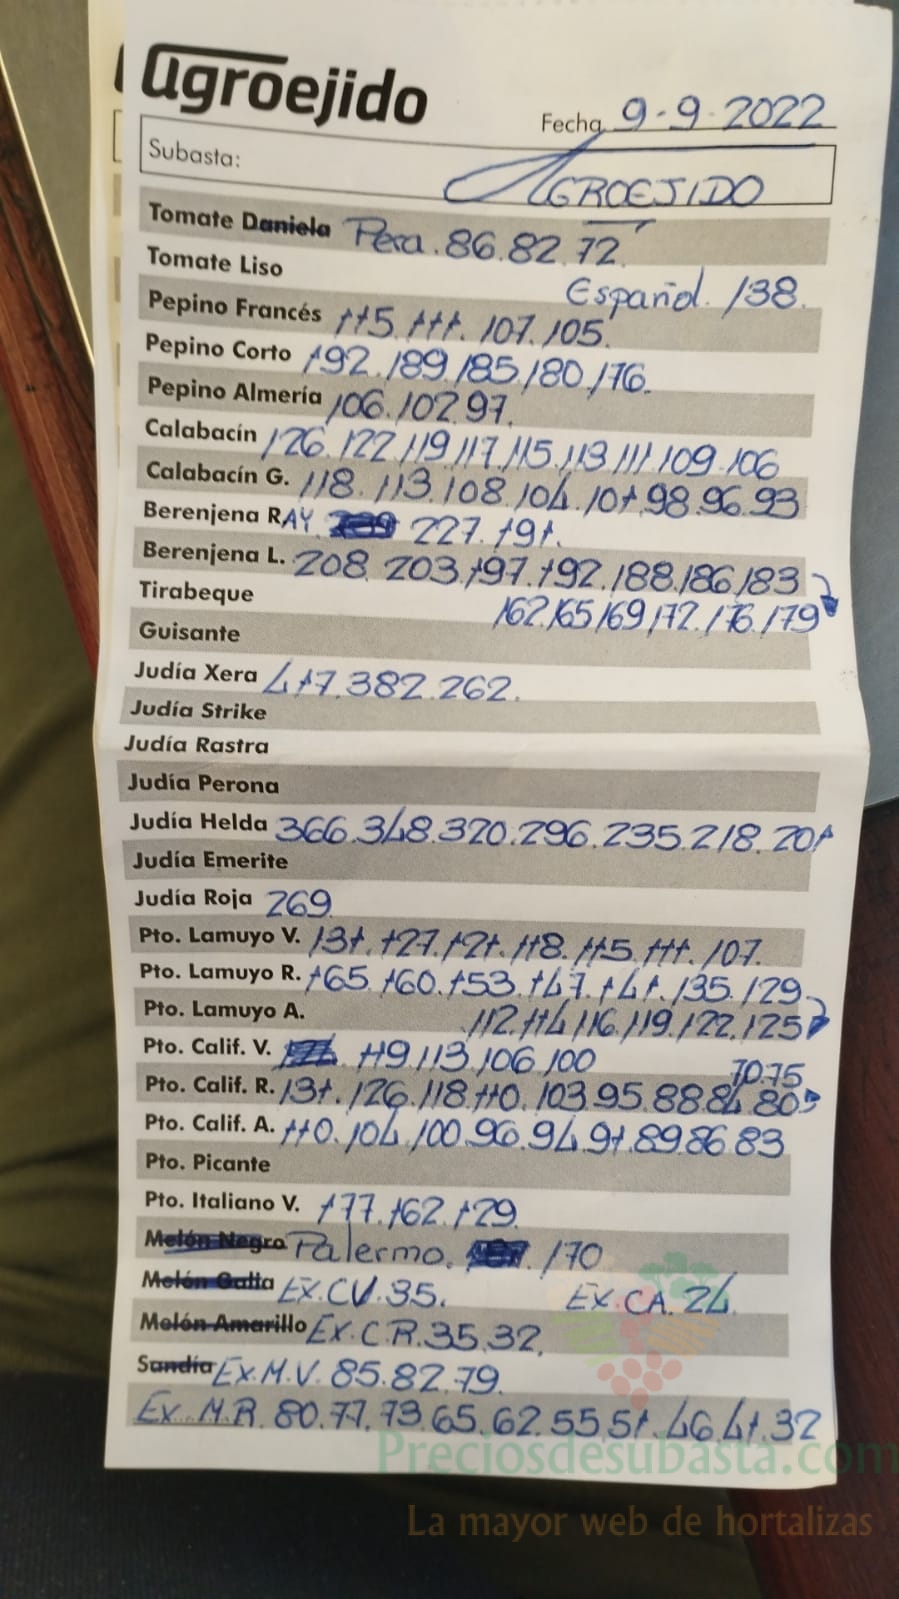 agroejido
Fecha 9-9-2022
Subasta: AGROEJIDO
Tomate Daniela Pera. 86.82.72.
Tomate Liso Español. 138.
Pepino Francés 115.111.107.105.
Pepino Corto 192.189.185.180.176.
Pepino Almería 106.102.97.
Calabacín 126.122.119.117.115.113.111.109.106
Calabacín G. 118.113.108.104.101.98.96.93
Berenjena RAY. 227.191.
Berenjena L. 208.203.197.192.188.186.183
Tirabeque 162.165.169.172.176.179
Guisante
Judía Xera 417.382.262.
Judía Strike
Judía Rastra
Judía Perona
Judía Helda 366.348.320.296.235.218.201
Judía Emerite
Judía Roja 269
Pto. Lamuyo V. 131.127.121.118.115.111.107.
Pto. Lamuyo R. 165.160.153.147.141.135.129
Pto. Lamuyo A. 112.114.116.119.122.125
Pto. Calif. V. 119.113.106.100
70.75
Pto. Calif. R. 131.126.118.110.103.95.88.84.80
Pto. Calif. A. 110.104.100.96.94.91.89.86.83
Pto. Picante
Pto. Italiano V. 177.162.129.
Melón Negro Palermo. 170
Melón Galia Ex.CV.35. Ex.CA.24.
Melón Amarillo Ex.C.R.35.32.
Sandía Ex.M.V. 85.82.79.
Ex.M.R. 80.77.73.65.62.55.51.46.41.32
Preciosdesubasta.com
La mayor web de hortalizas